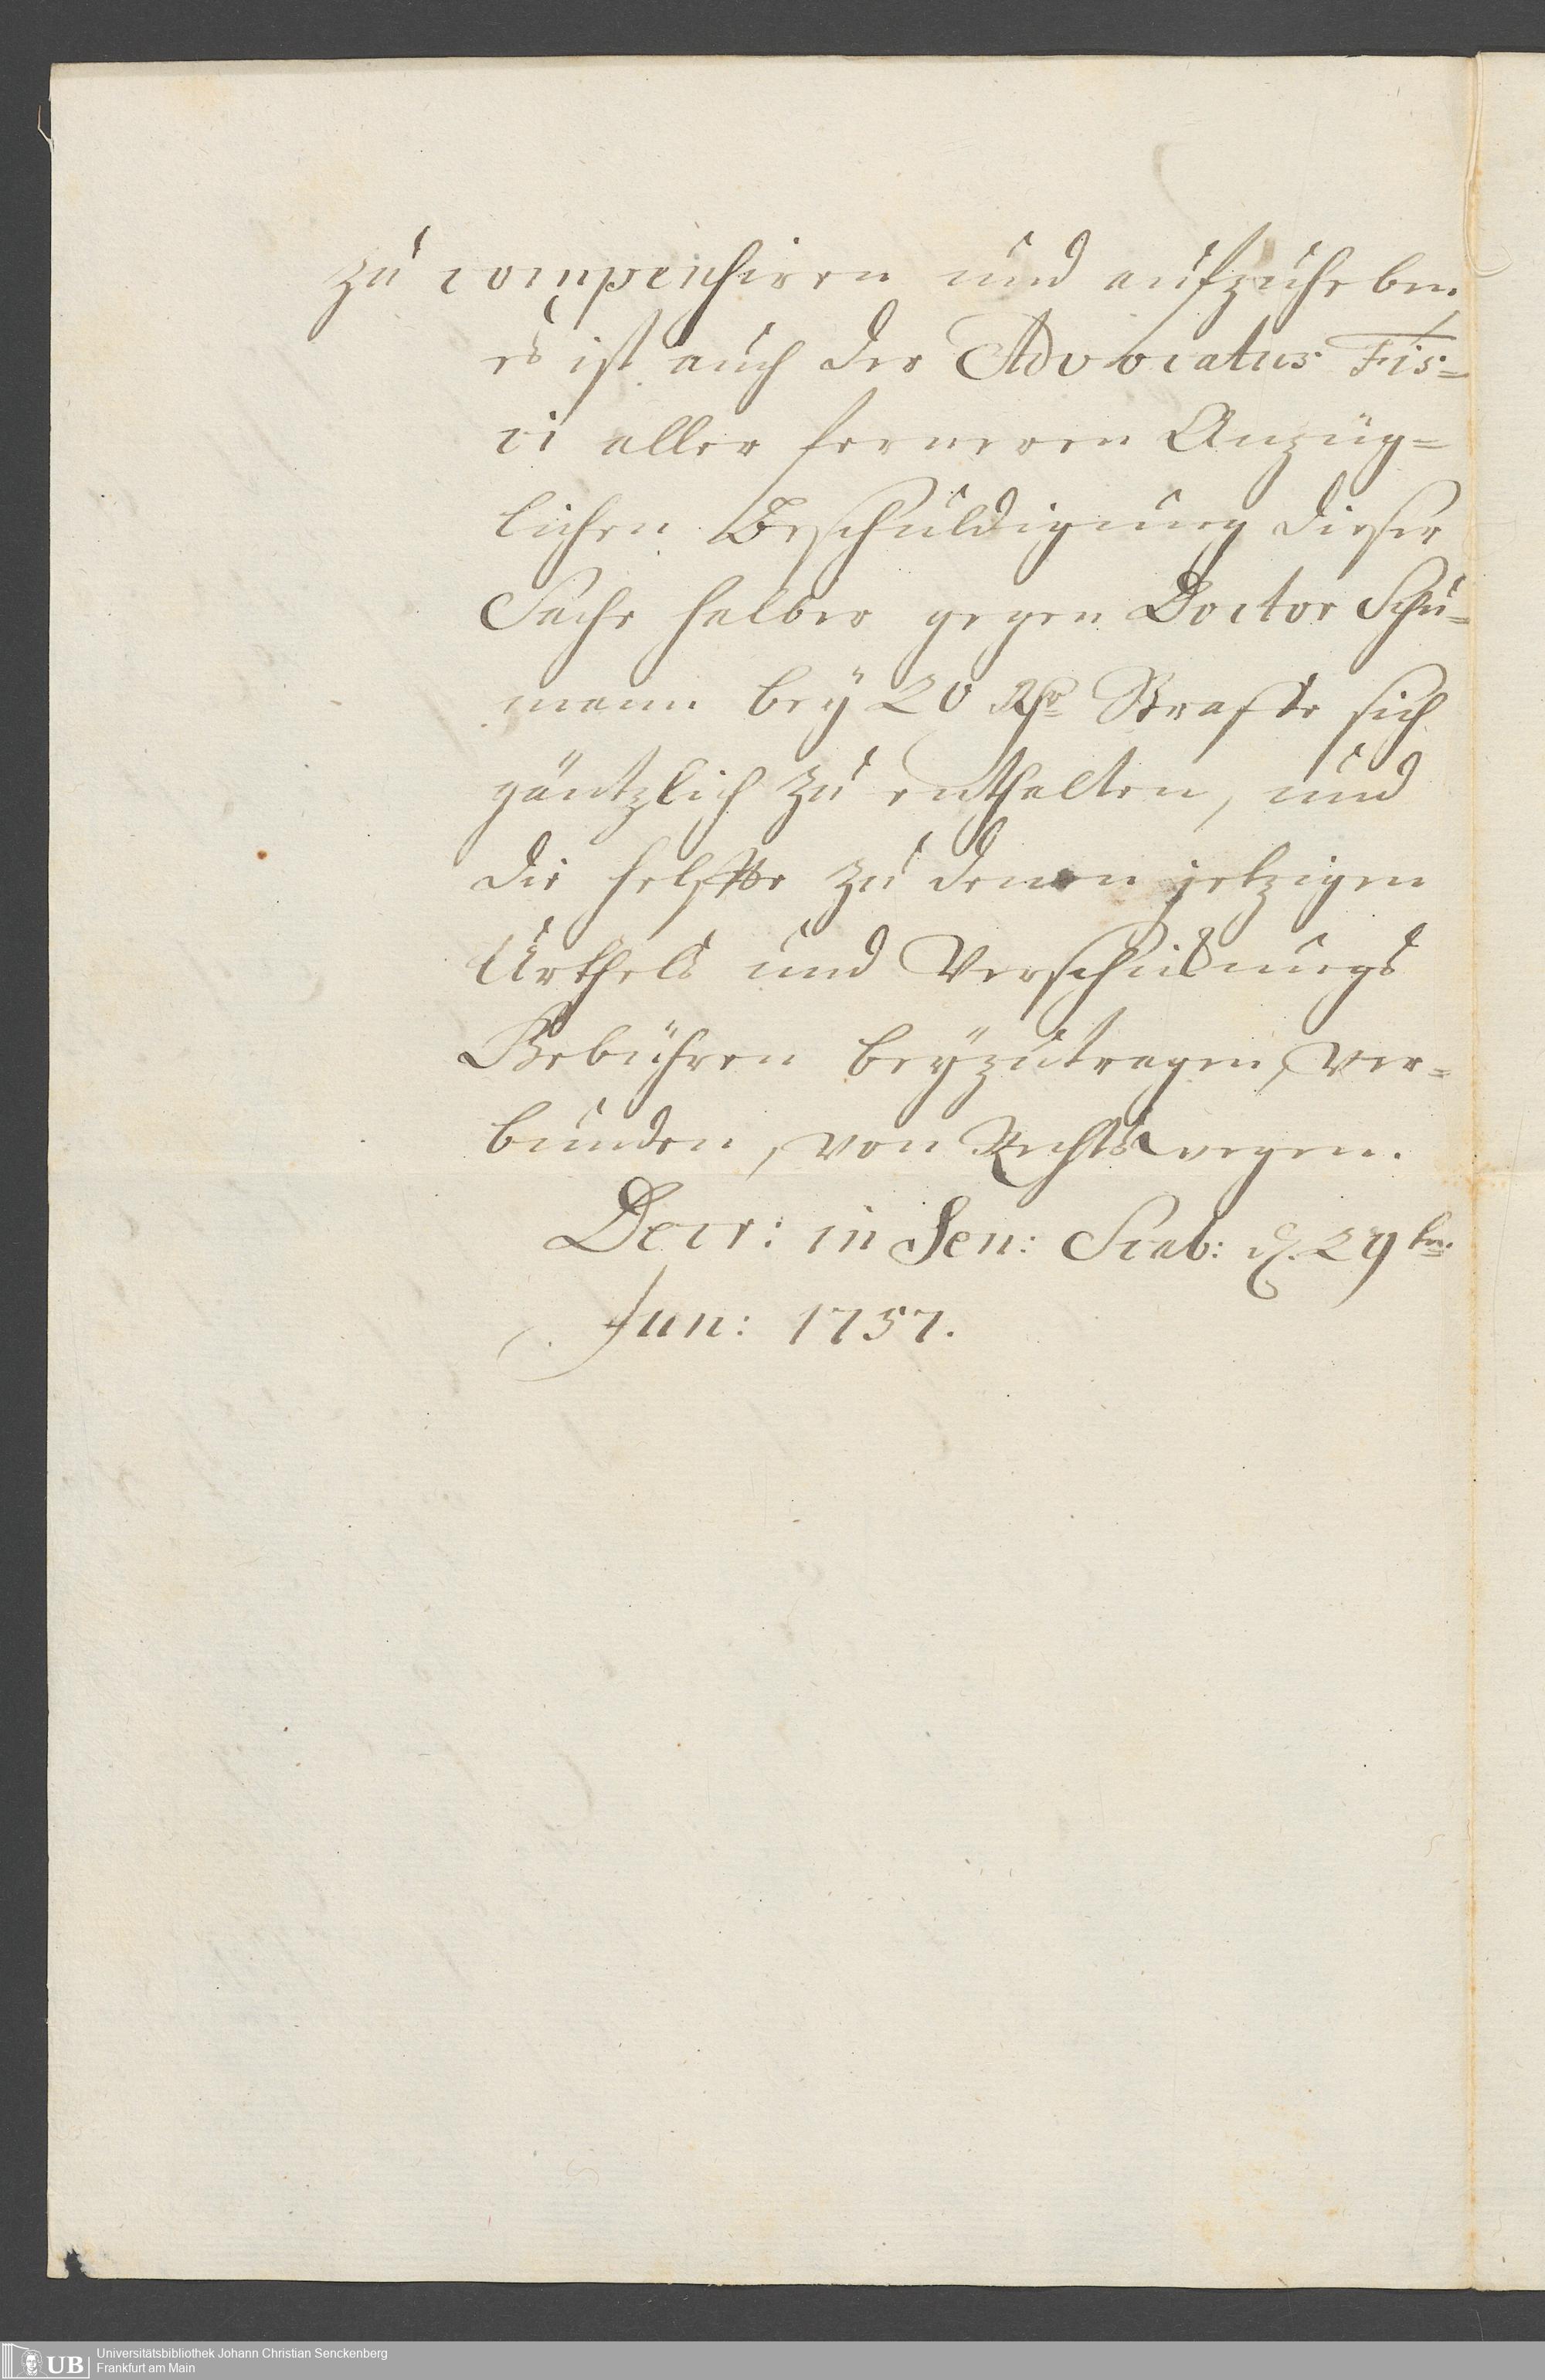 zu compensiren und aufzuheben.
es ist auch der Advocatus Fis=
ci aller ferneren Anzüg=
lichen Beschuldigung dieser
Sache halber gegen Doctor Schu=
mann bey 20 Rthr Straffe sich
gäntzlich zu enthalten, und
die helffte zu denen jetzigen
Urthels und Verschickungs
Gebühren beyzutragen, ver=
bunden, von Rechts wegen.
Decr: in Sen: Scab: d. 29ten.
Jun: 1757.
UB Universitätsbibliothek Johann Christian Senckenberg
Frankfurt am Main